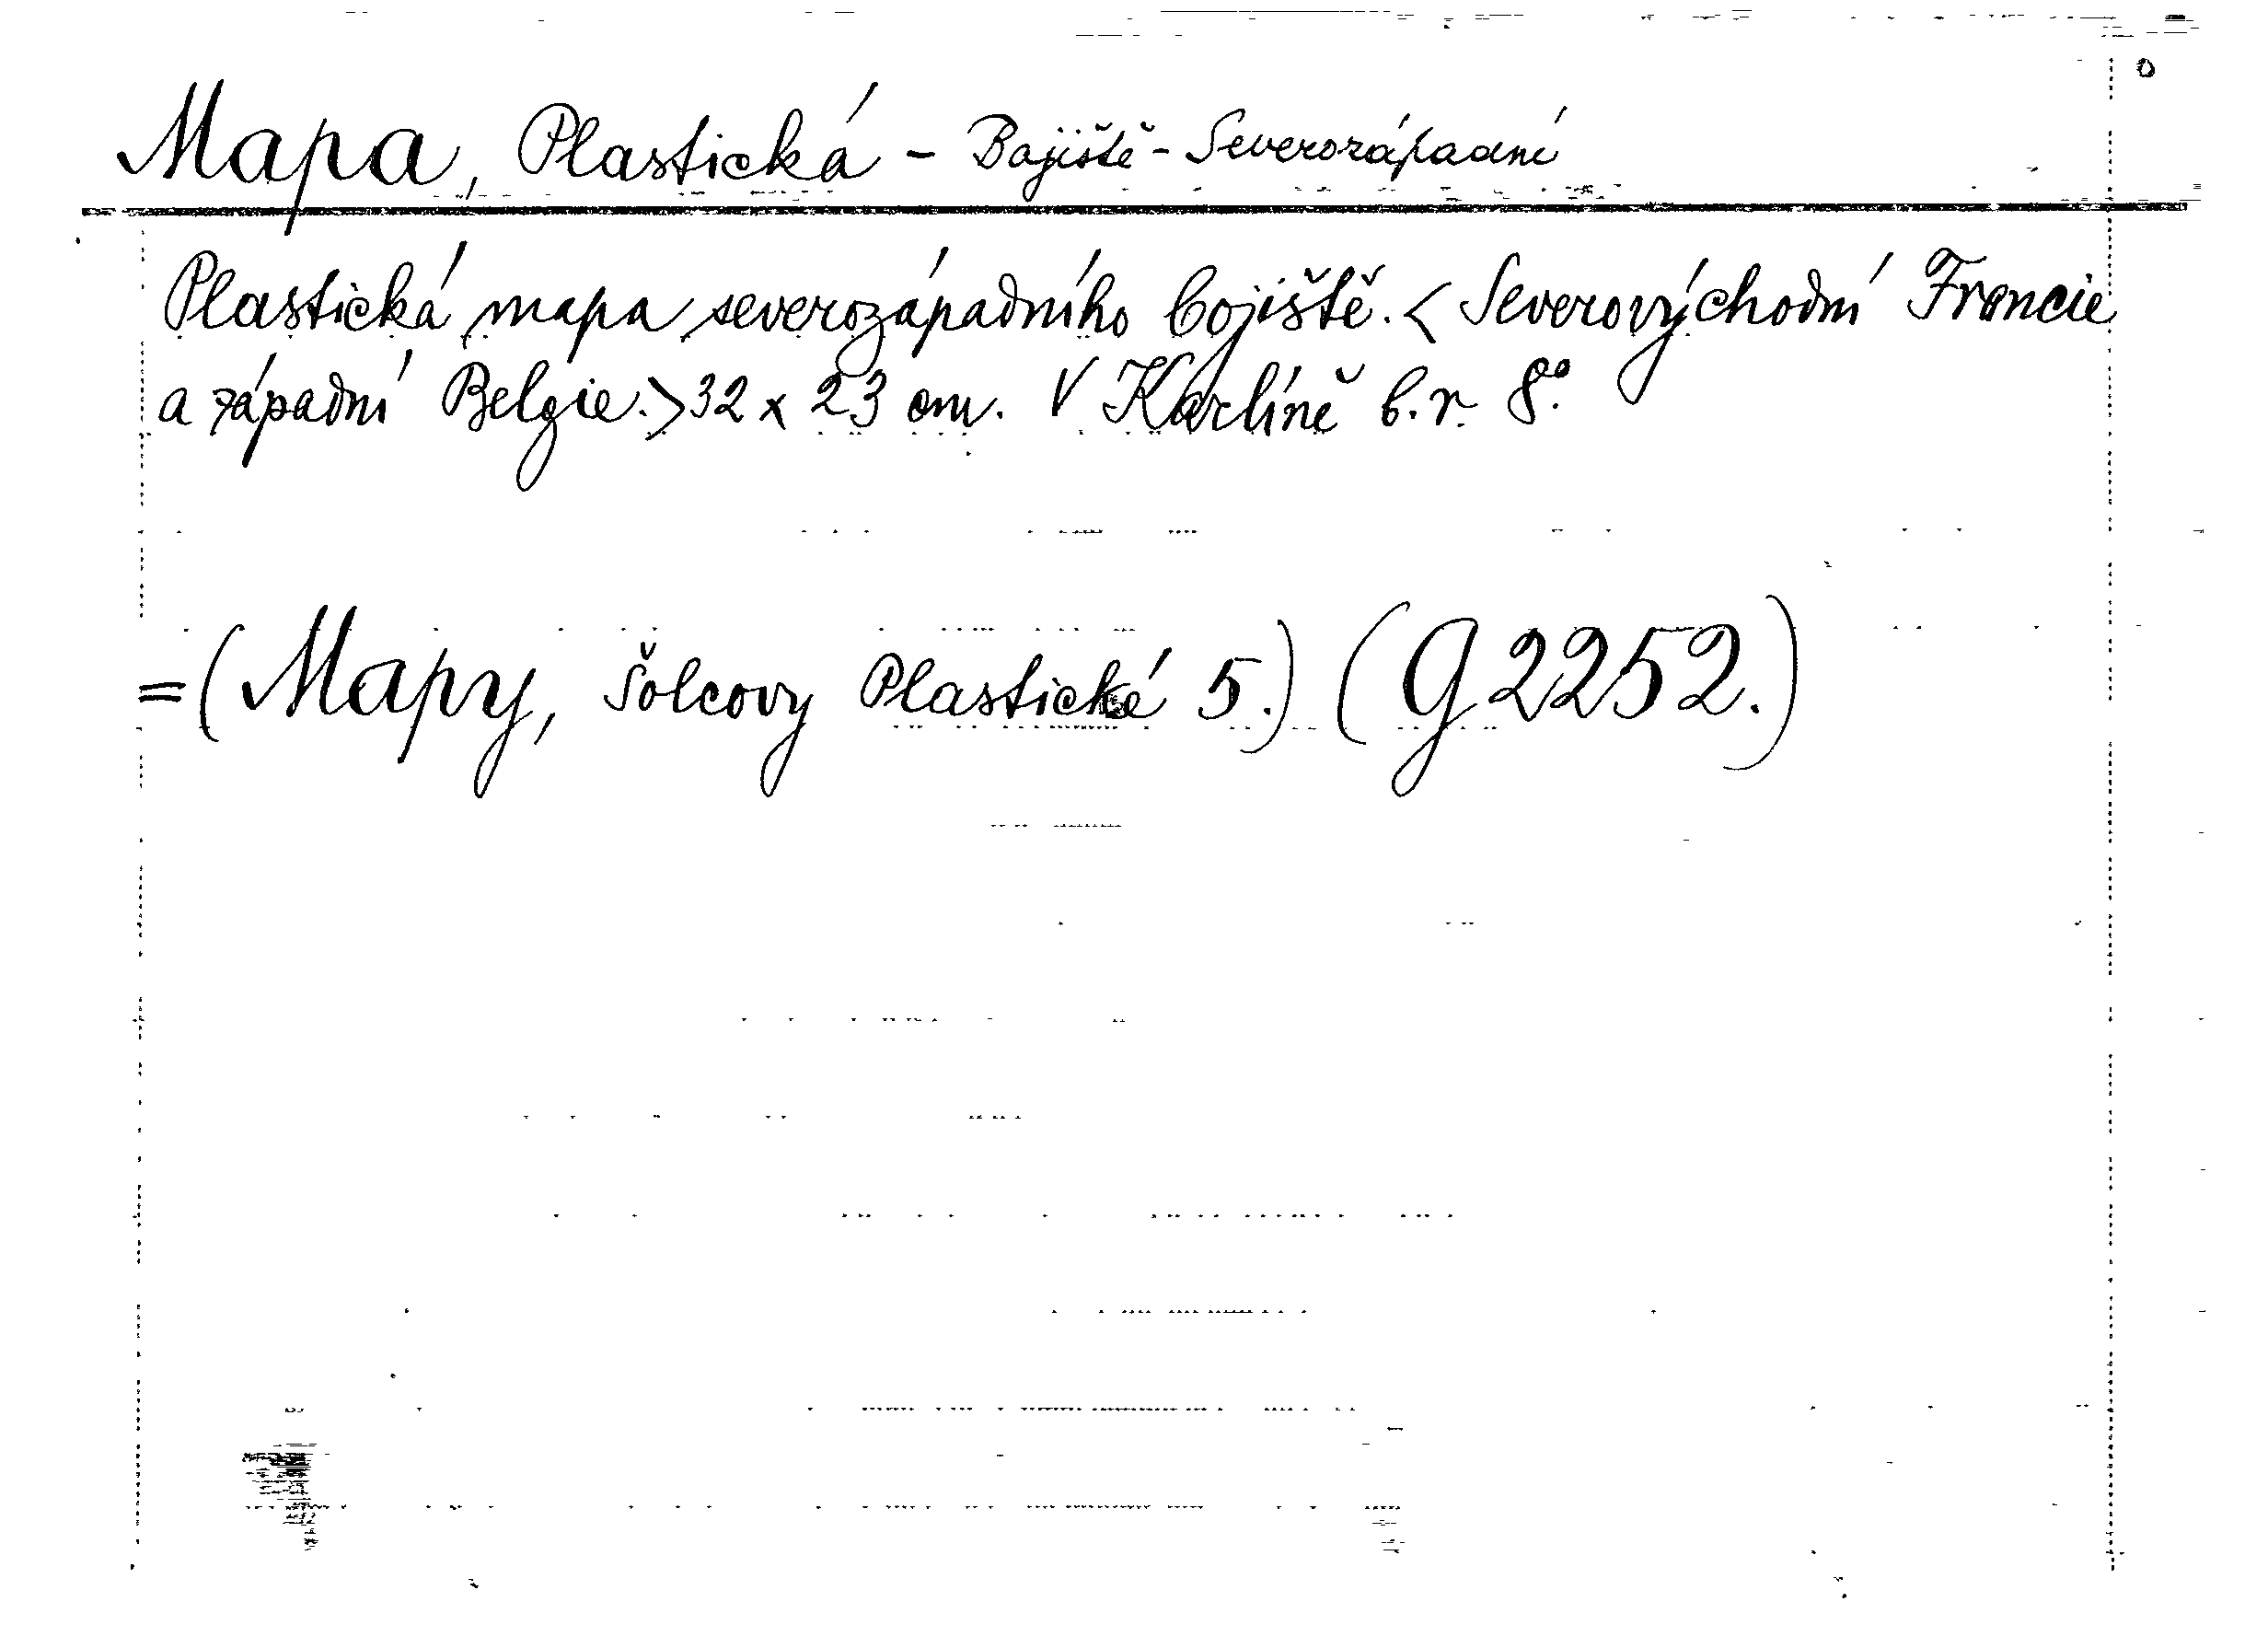 Mapa, Plastická - Bojiště - Severozápadní
Plastická mapa severozápadního bojiště. < Severovýchodní Francie
a západní Belgie. > 32 x 23 cm. V Karlíně b. r. 8º.
= (Mapy, Šolcovy Plastické 5.) (G 2252.)